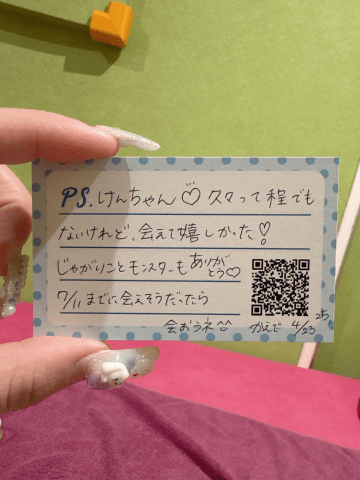 PS. けんちゃん♡ 久々って程でも
ないけれど、会えて嬉しかった♡!
じゃがりことモンスターもありがとう♡
7/11までに会えそうだったら
会おうネ^^ かえで 4/23 25